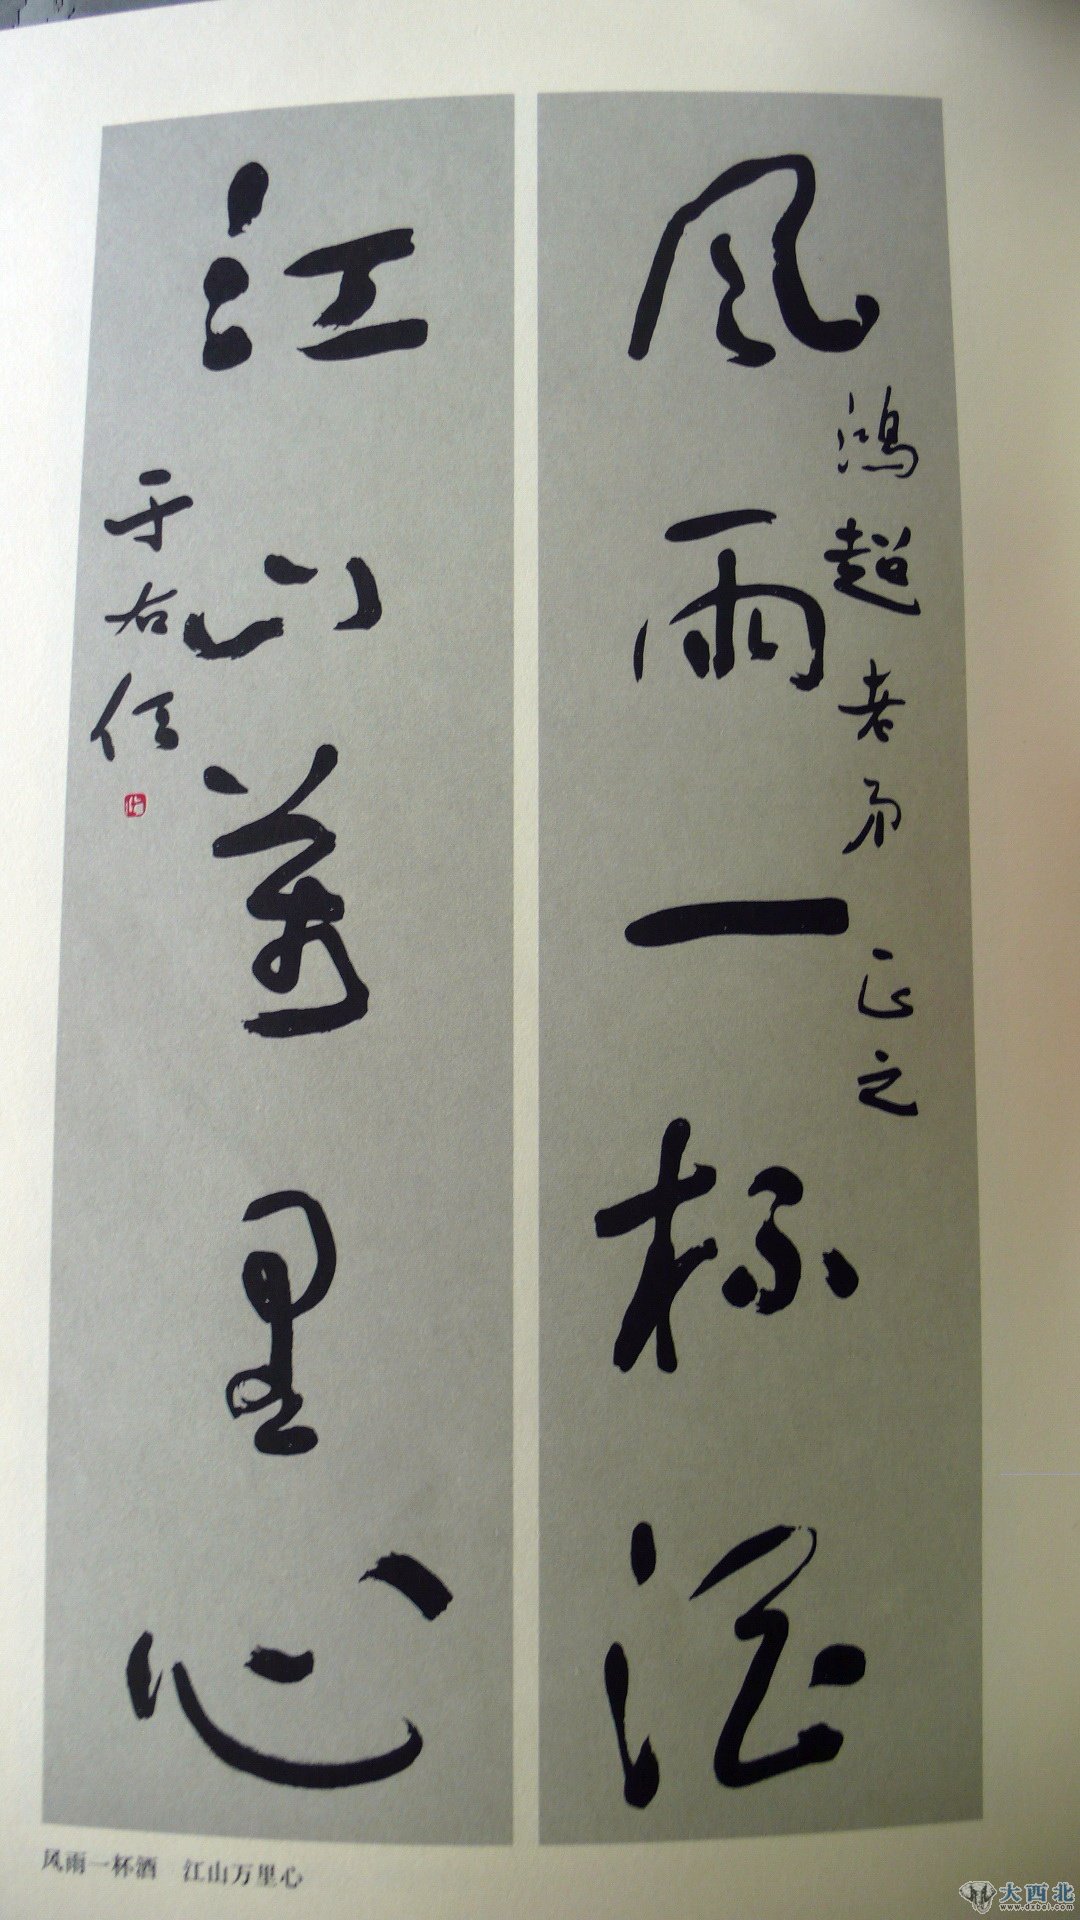 风雨一杯酒
鸿超老弟正之
江山萬里心
于右任
风雨一杯酒 江山万里心
大西北
www.dxbei.com